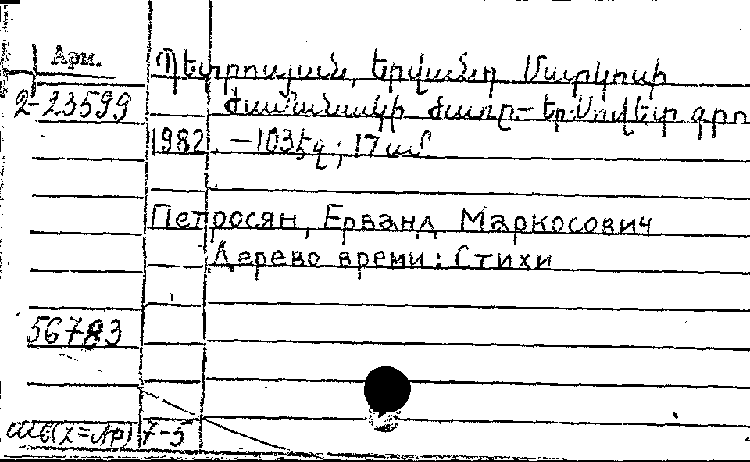 Арм.
Պետրոսյան, Երվանդ Մարկոսի
2-23599 Ժամանակի ծառը.- Եր: Սովետ. գրո
1982. -103 էջ; 17 սմ
Петросян, Ерванд Маркосович
Дерево времени: Стихи
56783
7-5